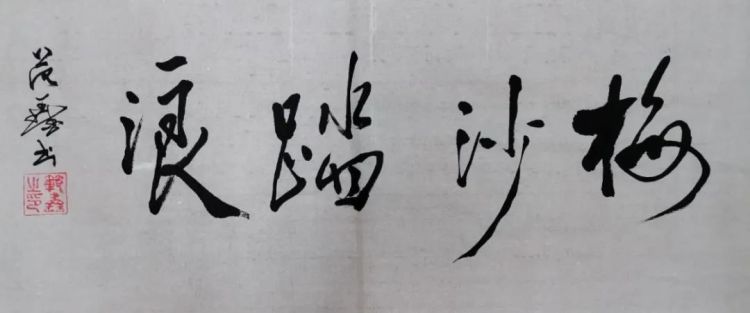 梅沙踏浪
范鑫书